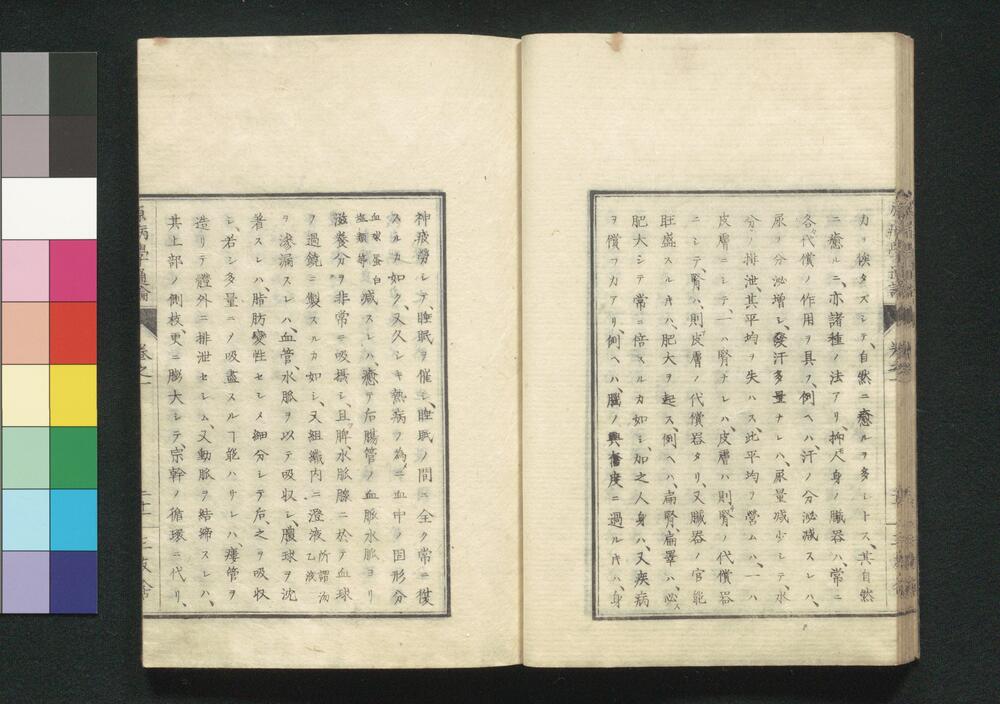 カリ俟タズシテ、自然ニ癒ルヲ多シトス、其自然
ニ癒ルニ、亦諸種ノ法アリ、抑人身ノ臓器ハ、常ニ
各代償ノ作用ヲ具フ、例ヘハ、汗ノ分泌減スレハ、
尿ノ分泌増シ、發汗多量ナレハ、尿量減少シテ、水
分ノ排泄、其平均ヲ失ハス、此平均ヲ營ムハ、一ハ
皮膚ニシテ、一ハ腎ナレハ、皮膚ハ則腎ノ代償器
ニシテ、腎ハ則皮膚ノ代償器タリ、又臓器ノ官能
旺盛スルキハ、肥大ヲ起ス、例ヘハ、扁腎、扁睾ハ、必
肥大シテ常ニ倍スルカ如シ、加之人身ハ、又疾病
ヲ償フカアリ、例ヘハ、腦ノ興奮度ニ過ルキハ、身
神疲勞シテ、睡眠ヲ催シ、睡眠ノ間ニ全ク常ニ復
スルカ如ク、又久シキ熱病ノ為メニ血中ノ固形分
血球蛋白
塩類等
減スレハ、癒テ后腸管ノ血脈水脈ヨリ
滋養分ヲ非常ニ吸攝シ、且脾、水脈腺ニ於テ血球
ヲ過饒ニ製スルカ如シ、又組織内ニ澄液
所謂汤
乙液
ヲ滲漏スレハ、血管、水脈ヲ以テ吸収シ、膿球ヲ沈
著スレハ、脂肪變性セシメ細分シテ后、之ヲ吸収
シ、若シ多量ニメ吸盡スルヿ能ハサレハ、瘻管ヲ
造リテ體外ニ排泄セシム、又動脈ヲ結締スレハ、
其上部ノ側枝、更ニ膨大シテ、宗幹ノ循環ニ代リ、
原病學通論
卷之一
二十一
三友舎